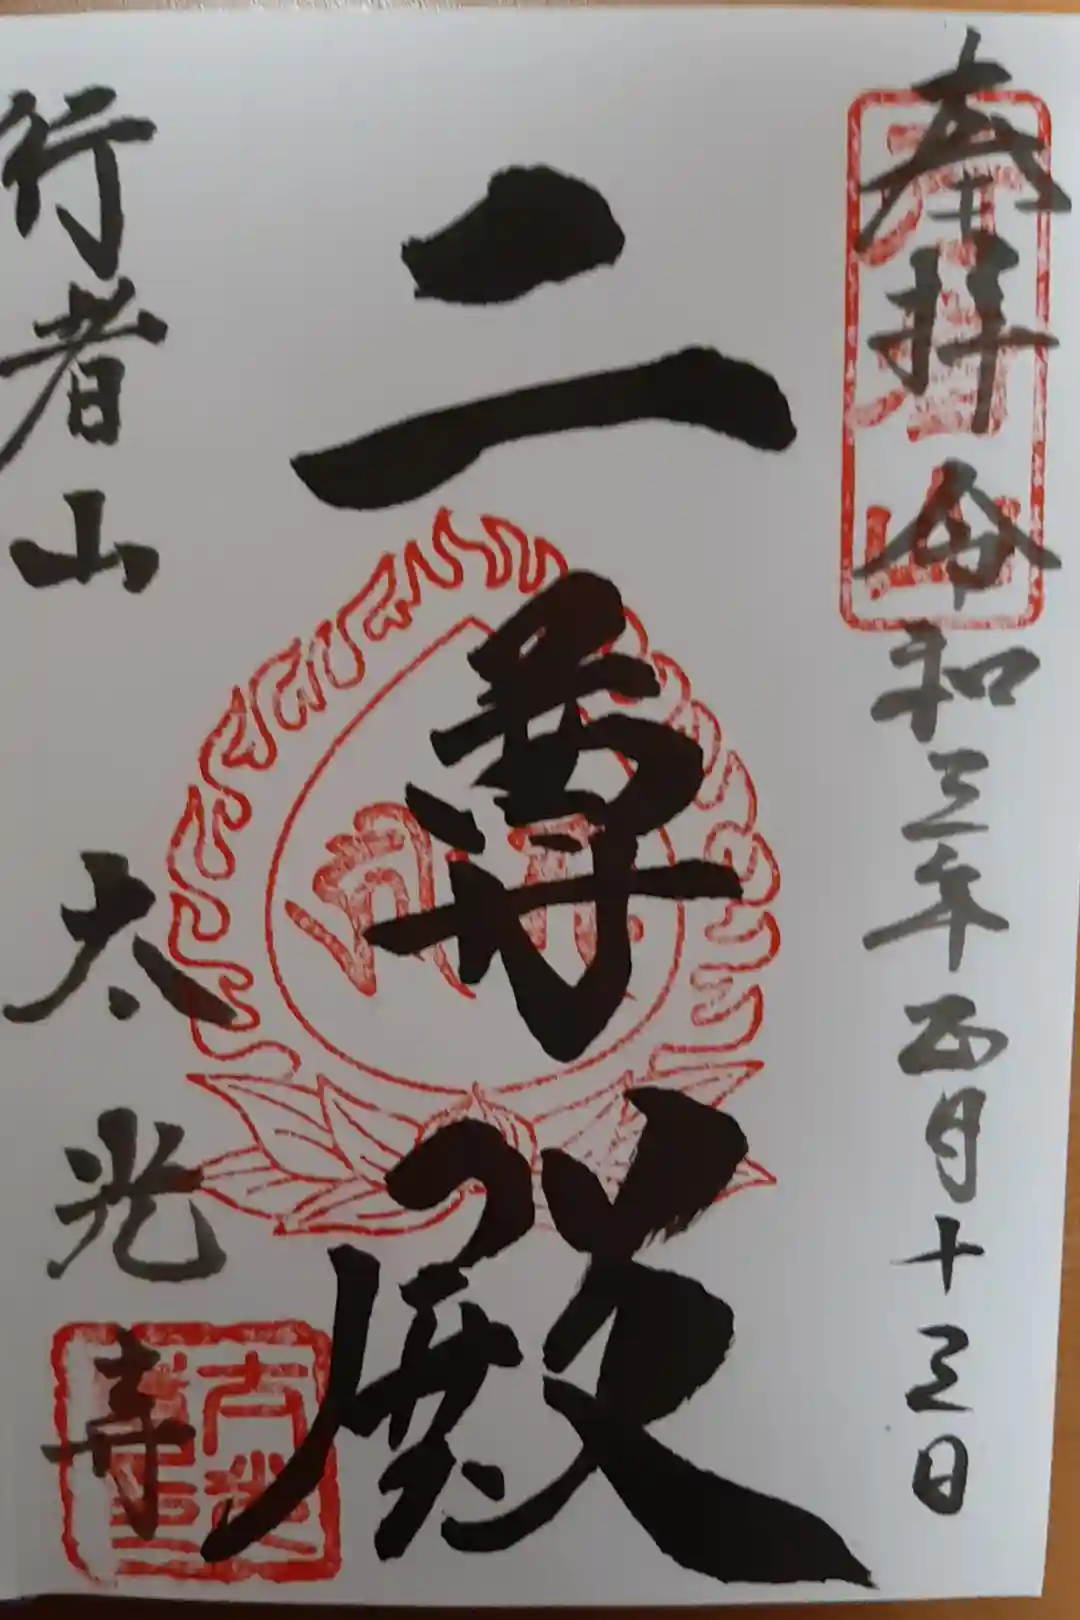 奉拝 令和三年正月十三日
二尊殿
行者山 太光寺